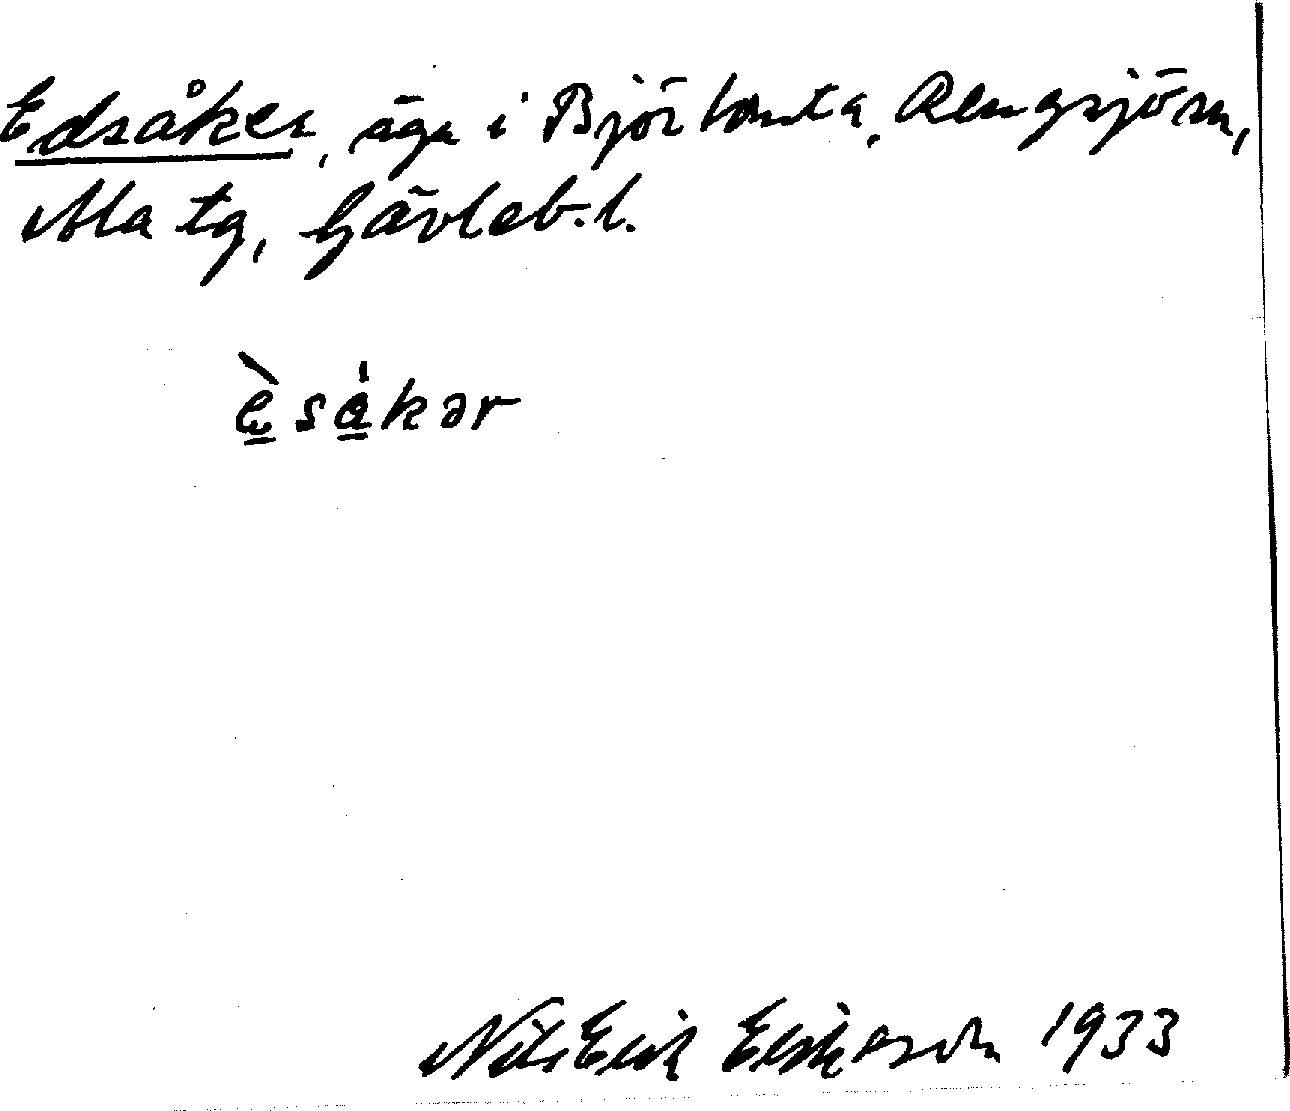 Edsåker, äga i Björtomta, Rengsjö sn,
Ala tg, Gävleb. l.
è̱sa̱̍kər
Nils Erik Eriksson 1933